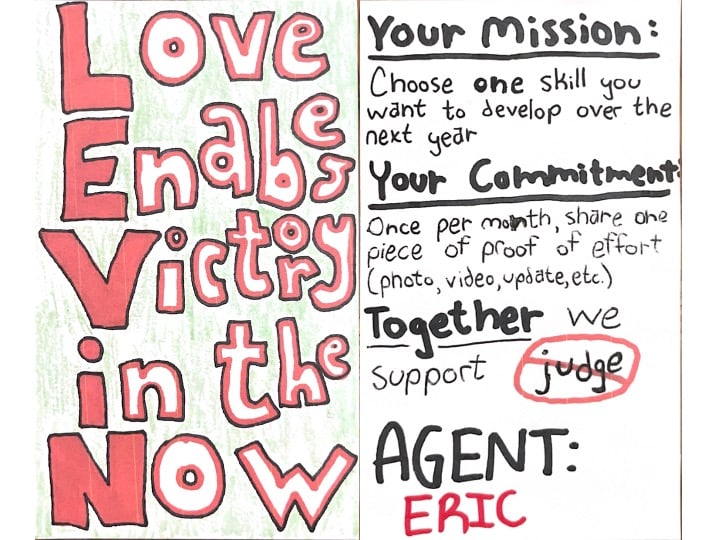 Love
Enables
Victory
in the
NOW
Your Mission:
Choose one skill you
want to develop over the
next year
Your Commitment:
Once per month, share one
piece of proof of effort
(photo, video, update, etc.)
Together we
support judge
AGENT:
ERIC